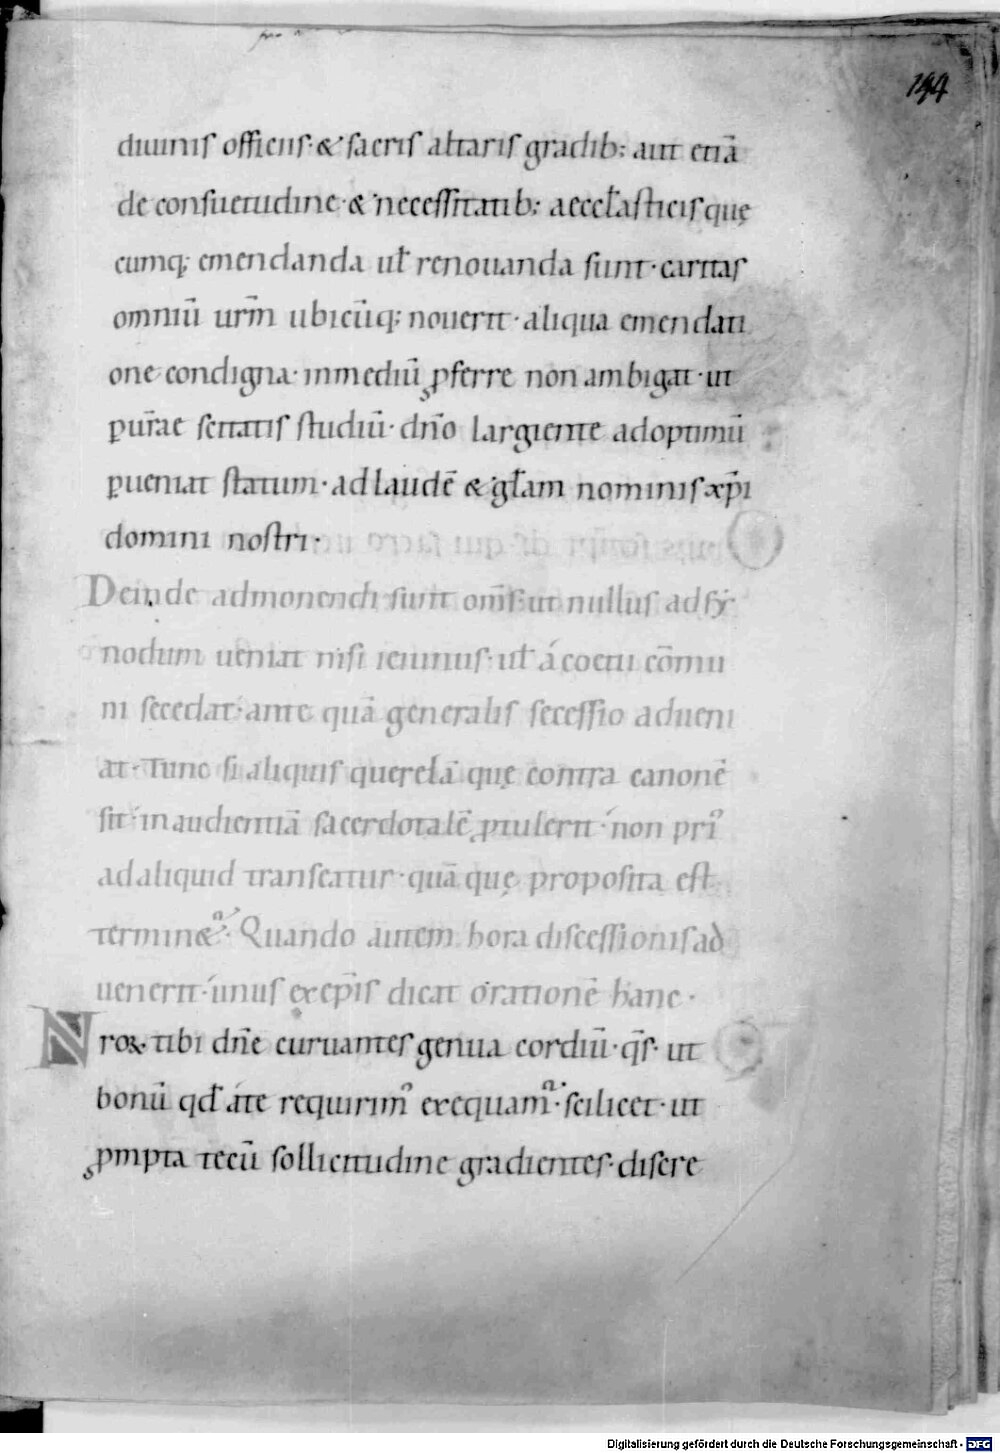 144
diuinis officiis· & sacris altaris gradib; aut etiā
de consuetudine· & necessitatib; aeccłasticis quę
cumq; emendanda uł renouanda sunt· caritas
omniū urm̄ ubicūq; nouerit· aliqua emendati
one condigna· in mediū ꝓferre non ambigat· ut
pur̄ae seritatis studiū· dn̄o largiente ad optimū
ꝑueniat statum· ad laudē & głam nominis xp̄i
domini nostri·
Deinde admonendi sunt om̄s· ut nullus ad sy
nodum ueniat nisi ieiunus· uł á coetu cōmu
ni secedat· ante quā generalis secessio adueni
at· Tunc si aliquis querelā quę contra canonē
sit· in audientiā sacerdotalē ꝓtulerit· non pri᷒
ad aliquid transeatur· quā quę proposita est
termin&ᷣ· Quando autem hora discessionis ad
uenerit· unus ex ep̄is dicat orationē hanc·
Nrox tibi dn̄e curuantes genua cordiū· q̄s· ut
bonū qđ á te requirim᷒ exequamᷣ· scilicet· ut
ꝓmpta tecū sollicitudine gradientes· discre
Digitalisierung gefördert durch die Deutsche Forschungsgemeinschaft - DFG